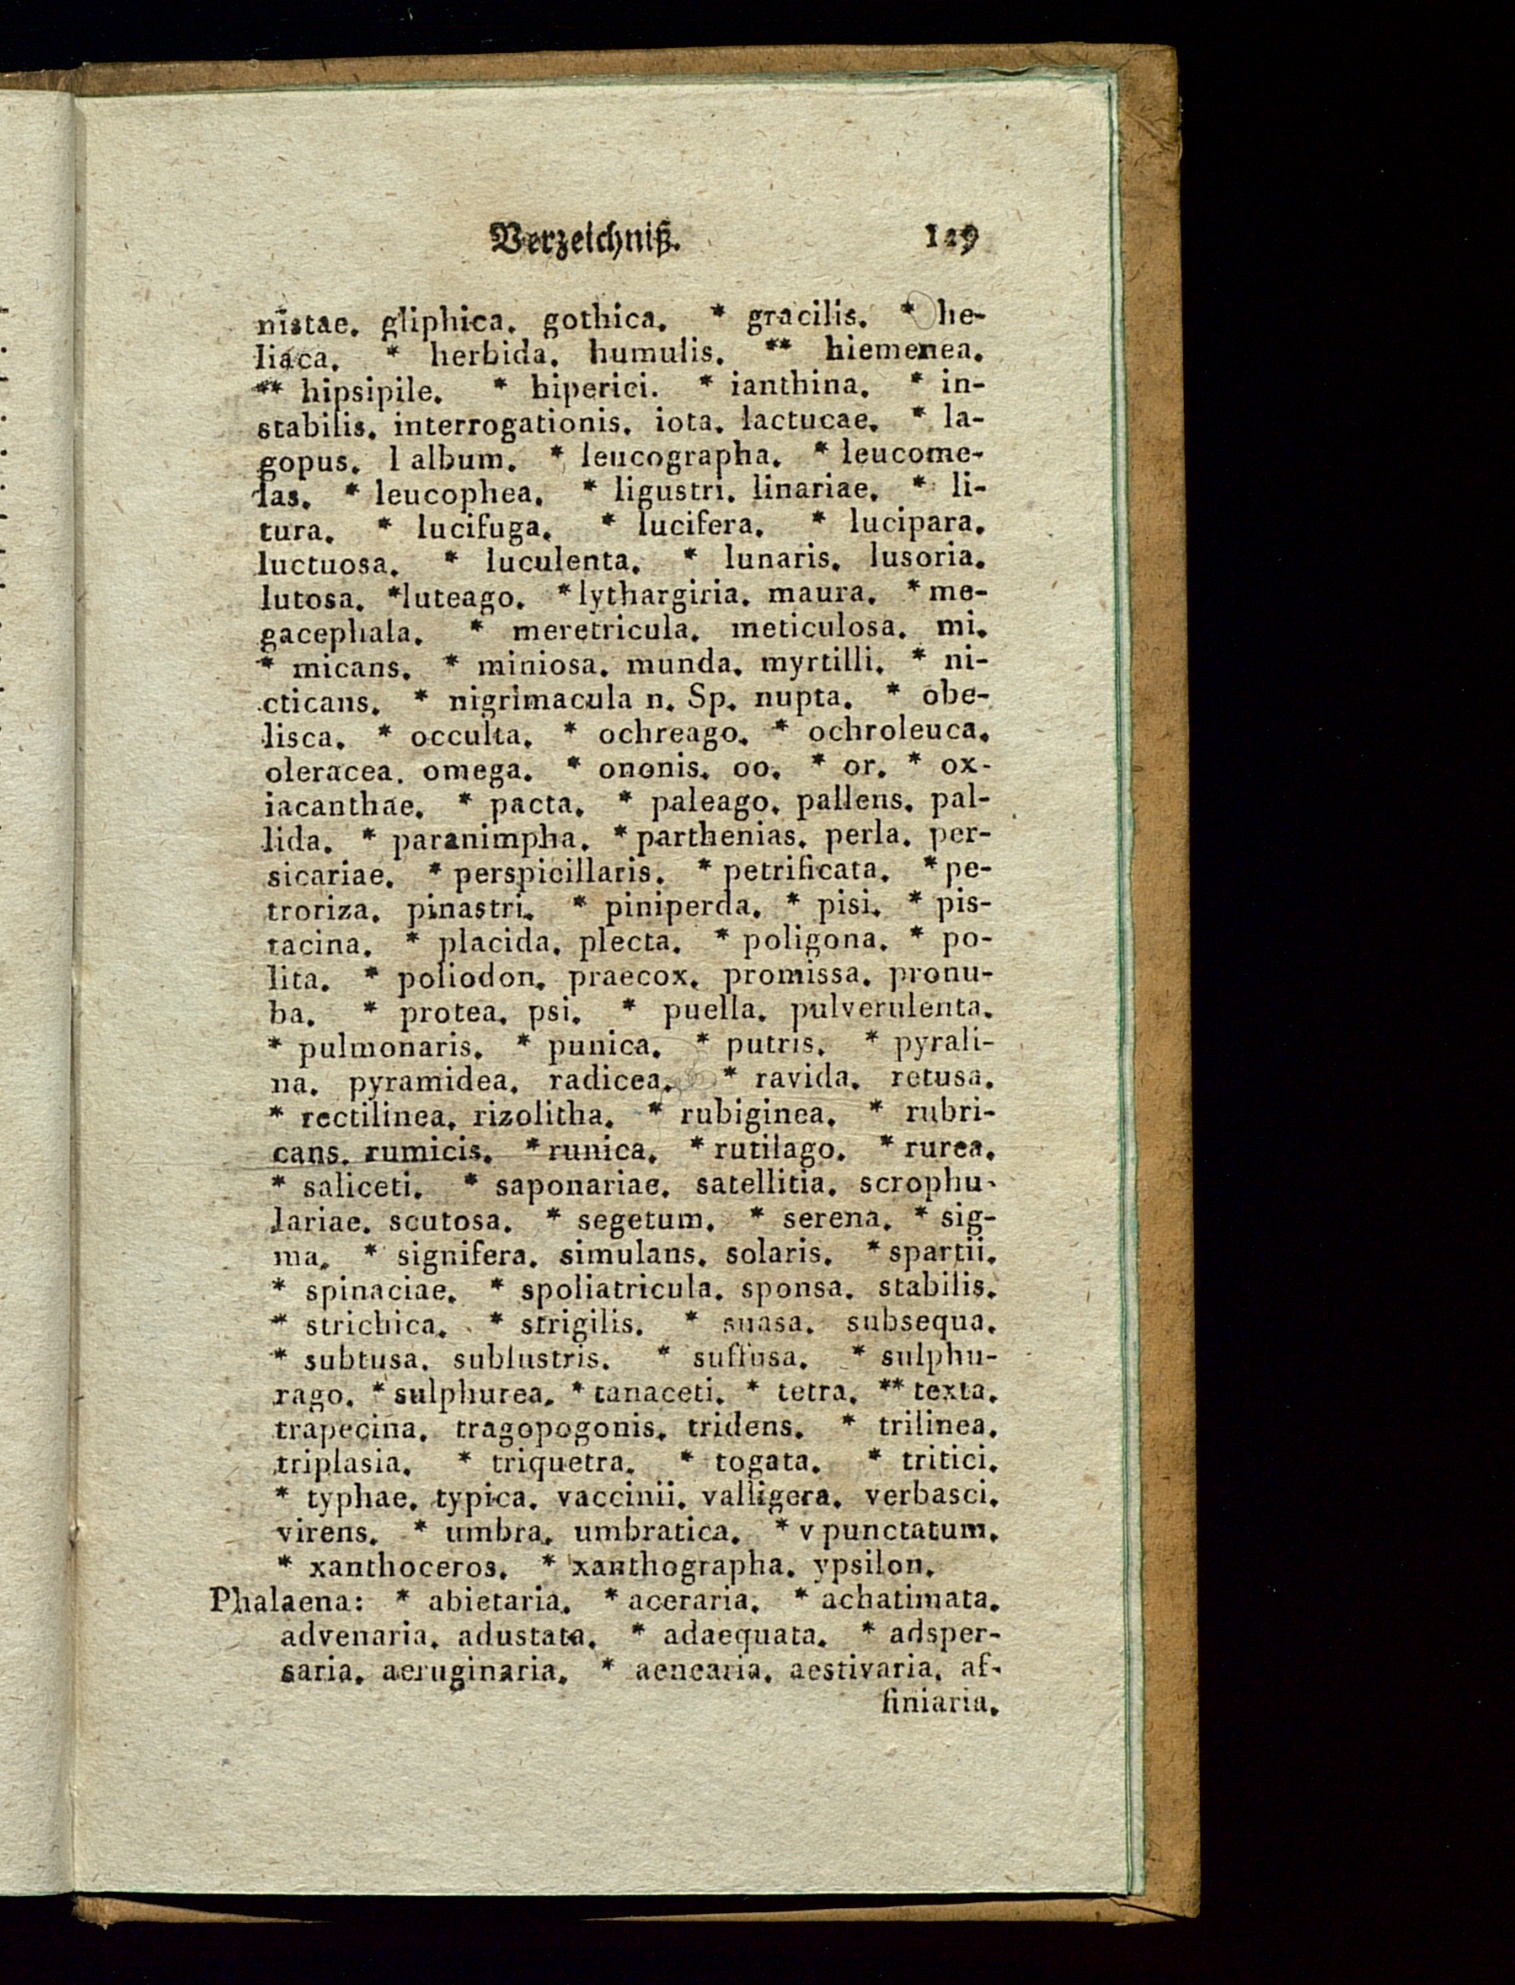 Verzeichniß. 129
nistae. gliphica. gothica. * gracilis. * he-
liaca. * herbida. humulis. ** hiemenea.
** hipsipile. * hiperici. * ianthina. * in-
stabilis. interrogationis. iota. lactucae. * la-
gopus. l album. * leucographa. * leucome-
las. * leucophea. * ligustri. linariae. * li-
tura. * lucifuga. * lucifera. * lucipara.
luctuosa. * luculenta. * lunaris. lusoria.
lutosa. *luteago. *lythargiria. maura. * me-
gacephala. * meretricula. meticulosa. mi.
* micans. * miniosa. munda. myrtilli. * ni-
cticans. * nigrimacula n. Sp. nupta. * obe-
lisca. * occulta. * ochreago. * ochroleuca.
oleracea. omega. * ononis. oo. * or. * ox-
iacanthae. * pacta. * paleago. pallens. pal-
lida. * paranimpha. * parthenias. perla. per-
sicariae. * perspicillaris. * petrificata. * pe-
troriza. pinastri. * piniperda. * pisi. * pis-
tacina. * placida. plecta. * poligona. * po-
lita. * poliodon. praecox. promissa. pronu-
ba. * protea. psi. * puella. pulverulenta.
* pulmonaris. * punica. * putris. * pyrali-
na. pyramidea. radicea. * ravida. retusa.
* rectilinea. rizolitha. * rubiginea. * rubri-
cans. rumicis. * runica. * rutilago. * rurea.
* saliceti. * saponariae. satellitia. scrophu-
lariae. scutosa. * segetum. * serena. * sig-
ma. * signifera. simulans. solaris. * spartii.
* spinaciae. * spoliatricula. sponsa. stabilis.
* strichica. * strigilis. * suasa. subsequa.
* subtusa. sublustris. * suffusa. * sulphu-
rago. * sulphurea. * tanaceti. * tetra. ** texta.
trapecina. tragopogonis. tridens. * trilinea.
triplasia. * triquetra. * togata. * tritici.
* typhae. typica. vaccinii. valligera. verbasci.
virens. * umbra. umbratica. * v punctatum.
* xanthoceros. * xanthographa. ypsilon.
Phalaena: * abietaria. * aceraria. * achatimata.
advenaria. adustata. * adaequata. * adsper-
saria. aeruginaria. * aenearia. aestivaria. af-
finiaria.